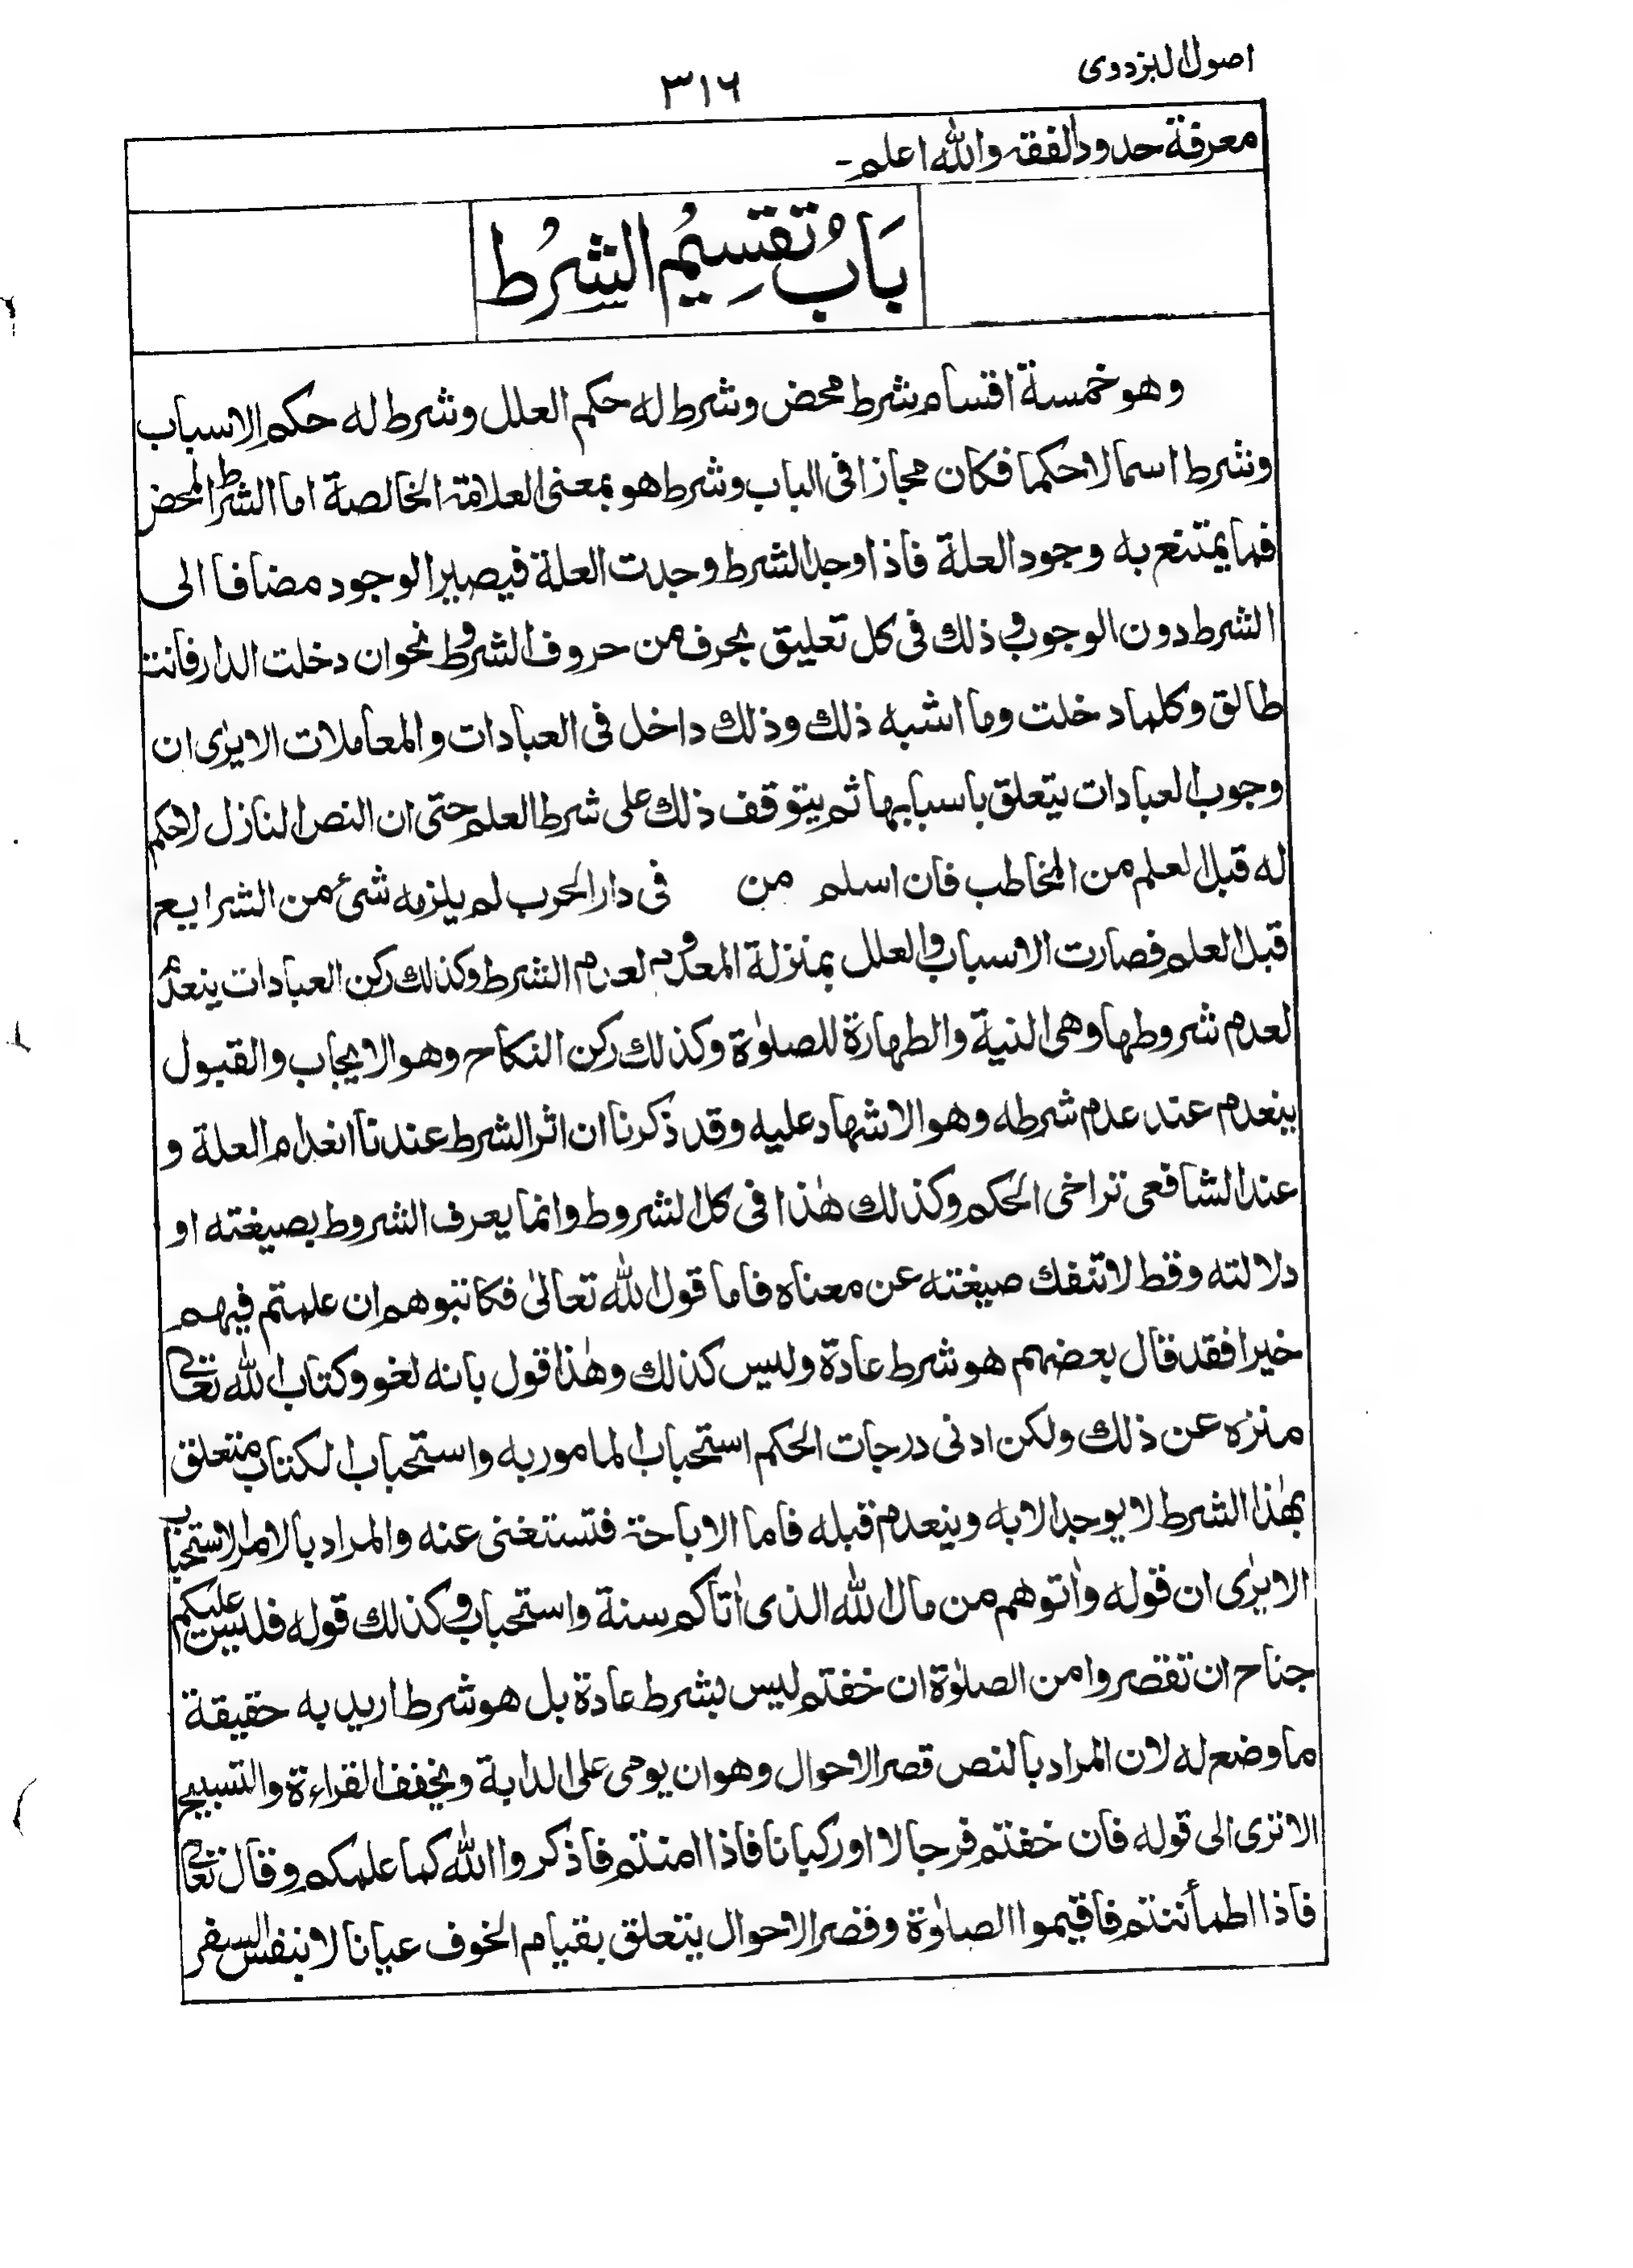 اصول البزدوی
۳۱۶
معرفة حدود الفقہ واللہ اعلم۔
بَابُ تقسِيمُ الشرُط
وهو خمسة اقسام شرط محض وشرط له حكم العلل وشرط له حكم الاسباب
وشرط اسما لاحكما فكان مجازا فى الباب وشرط هو بمعنى العلامة الخالصة اما الشرط المحض
فما يمتنع به وجود العلة فاذا وجد الشرط وجدت العلة فيصير الوجود مضافا الى
الشرط دون الوجوب وذلك فى كل تعليق بحرف من حروف الشروط نحو ان دخلت الدار فانت
طالق وكلما دخلت وما اشبه ذلك وذلك داخل فى العبادات والمعاملات الايرى ان
وجوب العبادات يتعلق باسبابها ثم يتوقف ذلك على شرط العلم حتى ان النص النازل لاحكم
له قبل العلم من المخاطب فان اسلم من فى دار الحرب لم يلزمه شئ من الشرايع
قبل العلم فصارت الاسباب والعلل بمنزلة المعدوم لعدم الشرط وكذلك ركن العبادات ينعدم
لعدم شروطها وهى النية والطهارة للصلوٰة وكذلك ركن النكاح وهو الايجاب والقبول
ينعدم عند عدم شرطه وهو الاشهاد عليه وقد ذكرنا ان اثر الشرط عندنا انعدام العلة و
عند الشافعى تراخى الحكم وكذلك هٰذا فى كل الشروط وانما يعرف الشروط بصيغته او
دلالته وقط لاتنفك صيغته عن معناه فاما قول الله تعالىٰ فكاتبوهم ان علمتم فيهم
خيرا فقد قال بعضهم هو شرط عادة وليس كذلك وهٰذا قول بانه لغو وكتاب الله تعالى
منزه عن ذلك ولكن ادنى درجات الحكم استحباب المامور به واستحباب الكتاب متعلق
بهٰذا الشرط لا يوجد الا به وينعدم قبله فاما الاباحة فتستغنى عنه والمراد بالامر الاستحباب
الايرٰى ان قوله وأتوهم من مال الله الذى أتاكم سنة واستحباب وكذلك قوله فليس عليكم
جناح ان تقصروا من الصلوٰة ان خفتم ليس بشرط عادة بل هو شرط اريد به حقيقة
ما وضع له لان المراد بالنص قصر الاحوال وهو ان يومى على الدابة ويخفف القراءة والتسبيح
الا ترى الى قوله فان خفتم فرجالا او ركبانا فاذا امنتم فاذكروا الله كما علمكم وقال تعالى
فاذا اطمأننتم فاقيموا الصلوٰة وقصر الاحوال يتعلق بقيام الخوف عيانا لا بنفس السفر